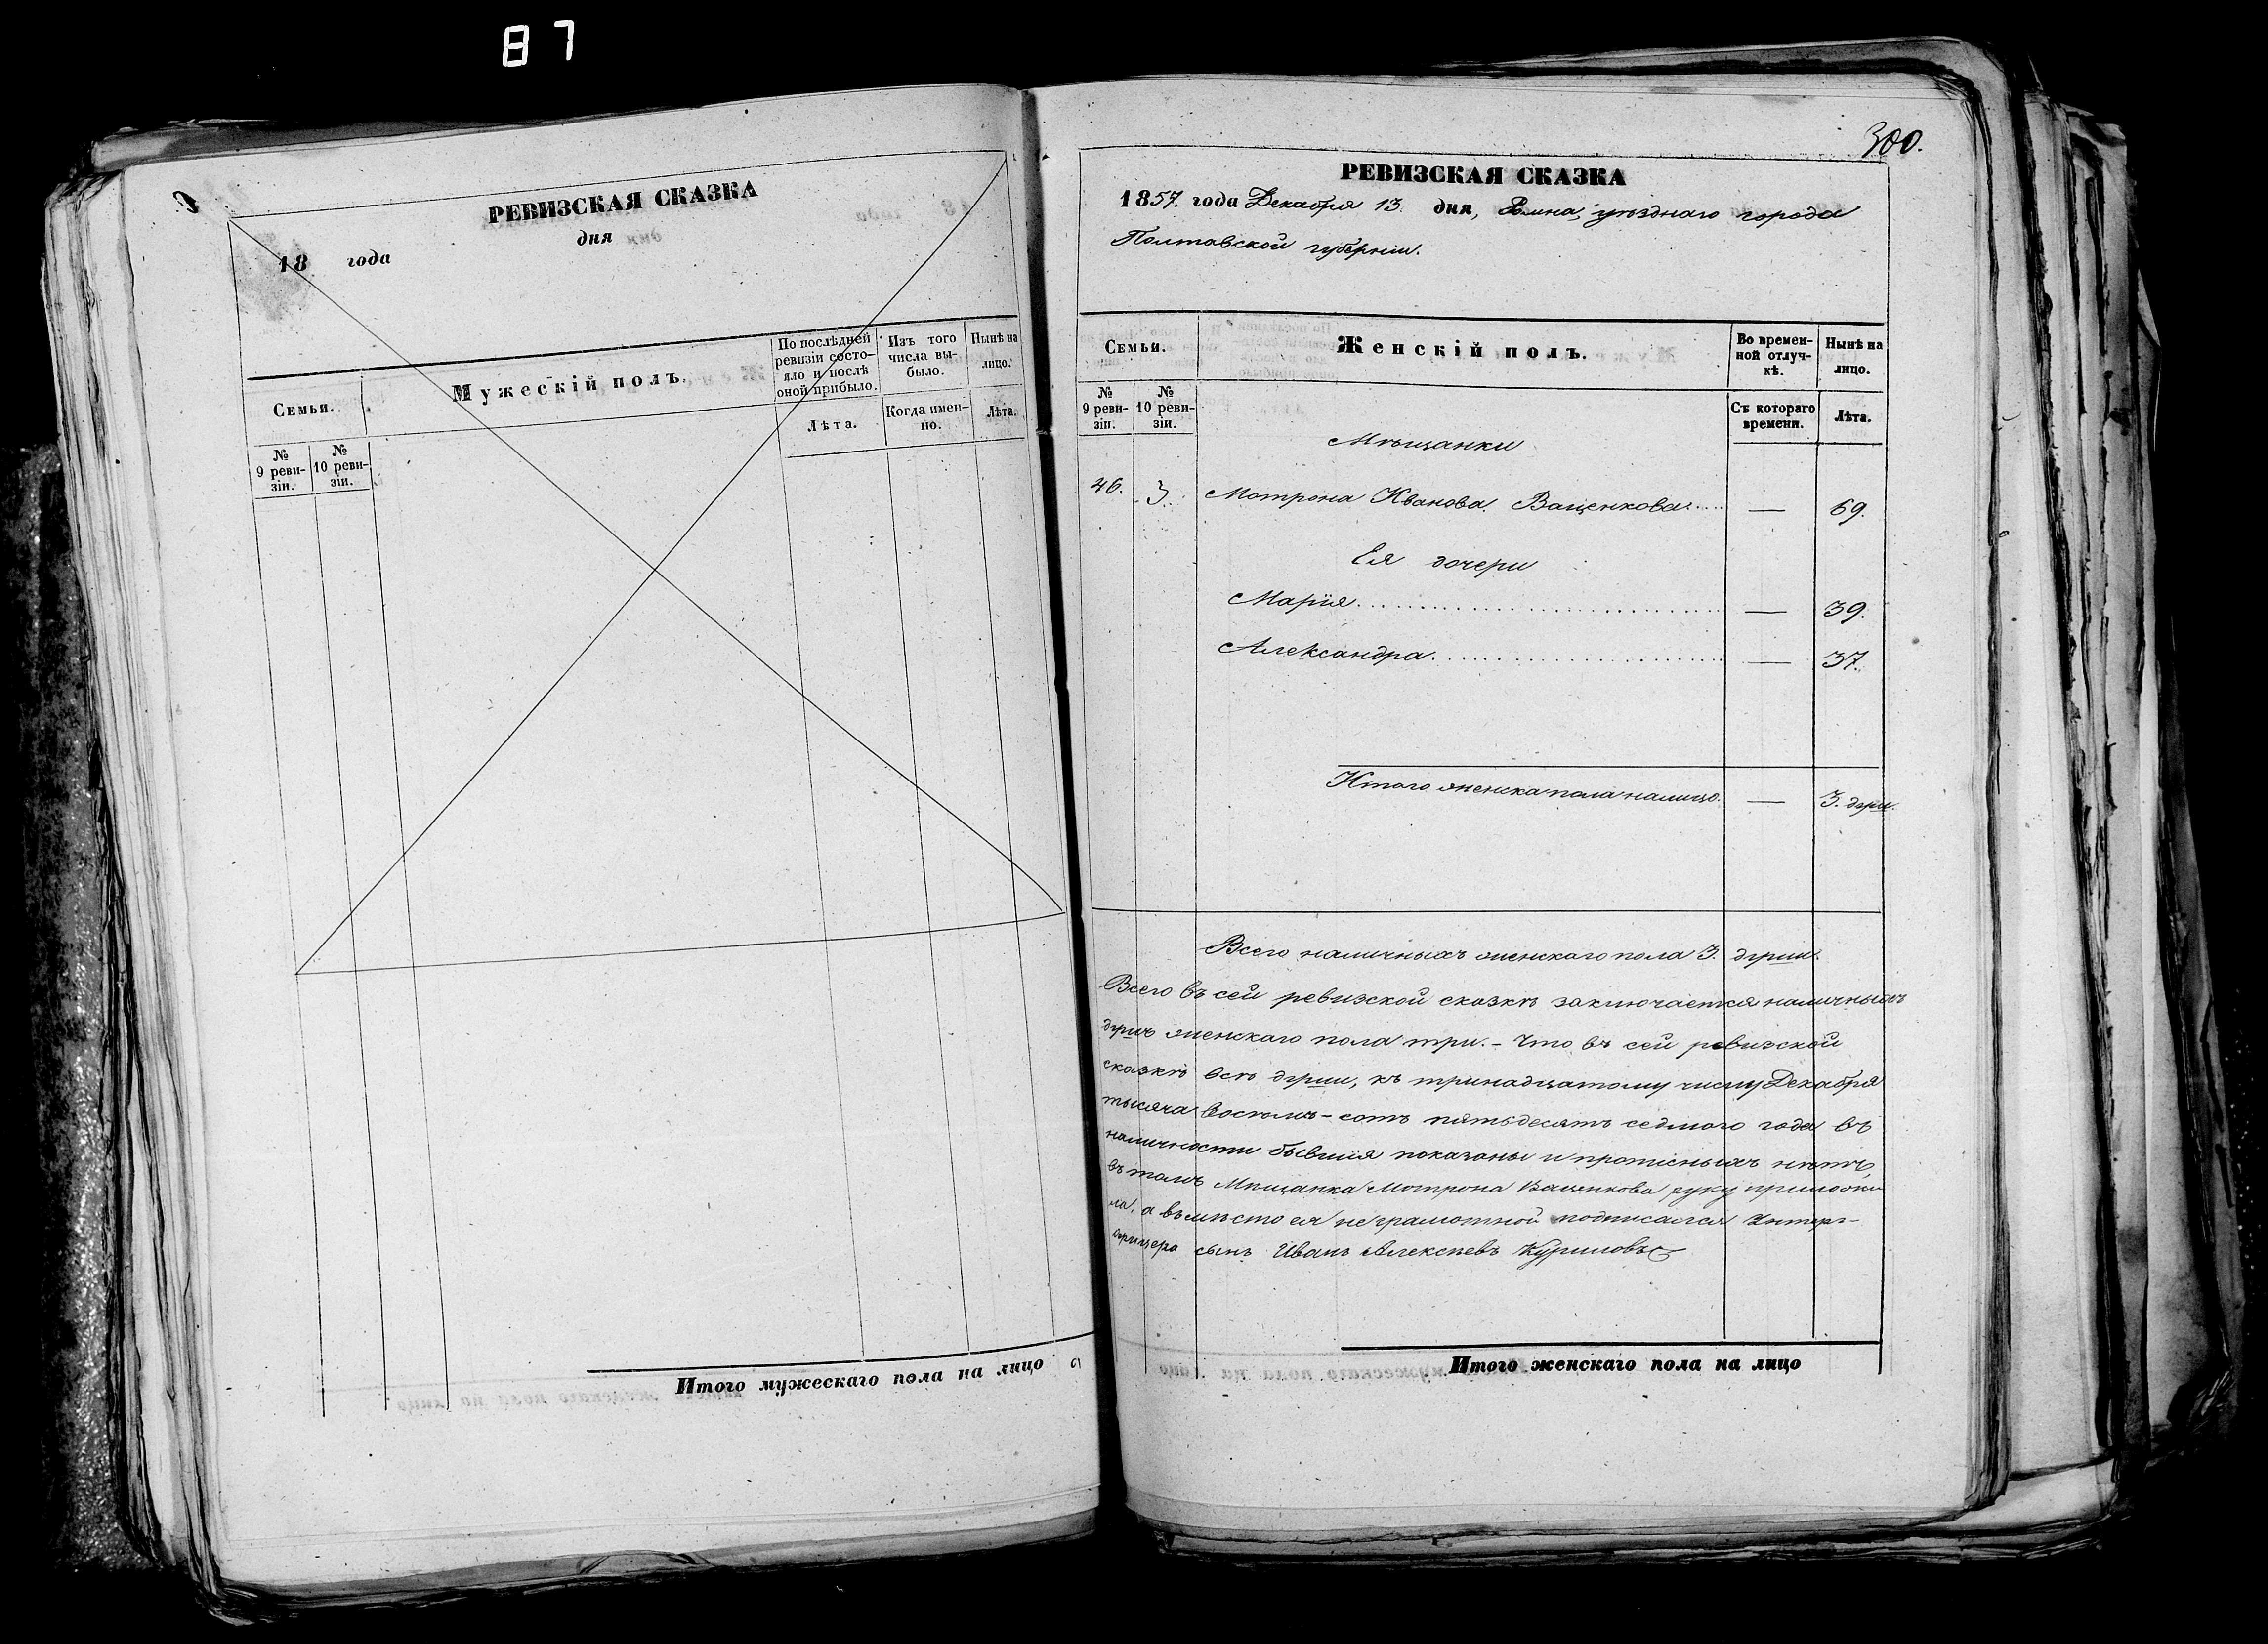 87
РЕВИЗСКАЯ СКАЗКА
18 года дня
Семьи.
Мужескій полъ.
По послѣдней ревизіи состо-яло и послѣ оной прибыло.
Изъ того числа вы-было.
Нынѣ на лицо.
№ 9 реви-зіи.
№ 10 реви-зіи.
Лѣта.
Когда имен-но.
Лѣта.
Итого мужескаго пола на лицо
300.
РЕВИЗСКАЯ СКАЗКА
1857. года Декабря 13. дня, Ромна, уѣзднаго города
Полтавской губерніи.
Семьи.
Женскій полъ.
Во времен-ной отлуч-кѣ.
Нынѣ на лицо.
№ 9 реви-зіи.
№ 10 реви-зіи.
Съ котораго времени.
Лѣта.
Мѣщанки
46. 3. Мотрона Иванова Ващенкова..... — 69.
Ея дочери
Марія. — 39.
Александра. — 37.
Итого женска пола налицо. — 3. души.
Всего наличныхъ женскаго пола 3. души.
Всего въ сей ревизской сказкѣ заключается наличныхъ
душъ женскаго пола три. – Что въ сей ревизской
сказкѣ всѣ души, къ тринадцатому числу Декабря
тысяча восемь-сотъ пятьдесятъ седмого года въ
наличности бывшія показаны и прописныхъ нѣтъ,
въ томъ Мѣщанка Мотрона Ващенкова руку приложи
ла, а вмѣсто ея неграмотной подписался Унтеръ-
офицера сынъ Иванъ Алексѣевъ Куриловъ
Итого женскаго пола на лицо